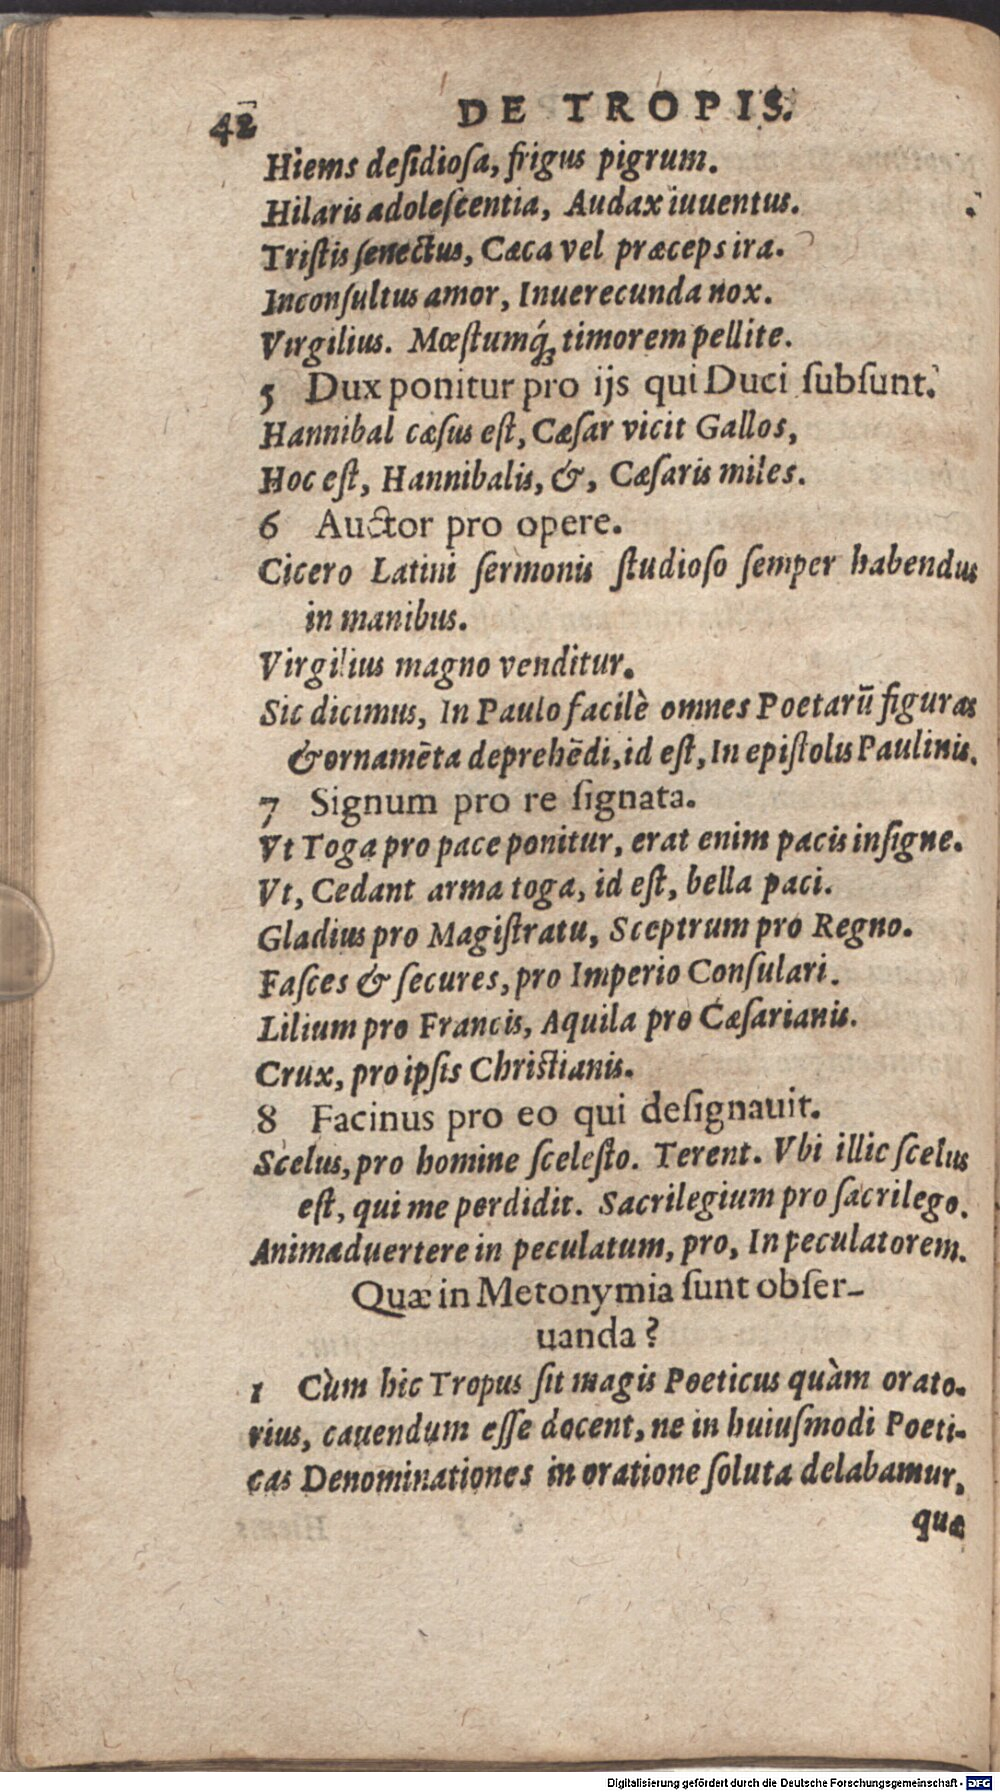 42 DE TROPIS.
Hiems deſidioſa, frigus pigrum.
Hilaris adoleſcentia, Audax iuuentus.
Triſtis ſenectus, Cæca vel præceps ira.
Inconſultus amor, Inuerecunda nox.
Virgilius. Mœſtumq́ꝫ timorem pellite.
5 Dux ponitur pro ijs qui Duci ſubſunt.
Hannibal cæſus eſt, Cæſar vicit Gallos,
Hoc eſt, Hannibalis, &, Cæſaris miles.
6 Auctor pro opere.
Cicero Latini ſermonis ſtudioſo ſemper habendus
in manibus.
Virgilius magno venditur.
Sic dicimus, In Paulo facilè omnes Poetarū figuras
& ornamēta deprehēdi, id eſt, In epiſtolis Paulinis.
7 Signum pro re ſignata.
Vt Toga pro pace ponitur, erat enim pacis inſigne.
Vt, Cedant arma toga, id eſt, bella paci.
Gladius pro Magiſtratu, Sceptrum pro Regno.
Faſces & ſecures, pro Imperio Conſulari.
Lilium pro Francis, Aquila pro Cæſarianis.
Crux, pro ipſis Chriſtianis.
8 Facinus pro eo qui deſignauit.
Scelus, pro homine ſceleſto. Terent. Vbi illic ſcelus
eſt, qui me perdidit. Sacrilegium pro ſacrilego.
Animaduertere in peculatum, pro, In peculatorem.
Quæ in Metonymia ſunt obſer-
uanda?
1 Cùm hic Tropus ſit magis Poeticus quàm orato-
rius, cauendum eſſe docent, ne in huiuſmodi Poeti-
cas Denominationes in oratione ſoluta delabamur,
quæ
Digitalisierung gefördert durch die Deutsche Forschungsgemeinschaft - DFG